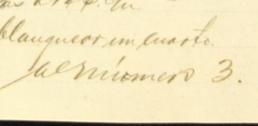 blanquear un cuarto.
al número 3.